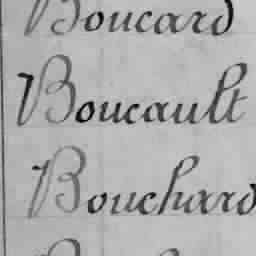 Boucard
Boucault
Bouchard